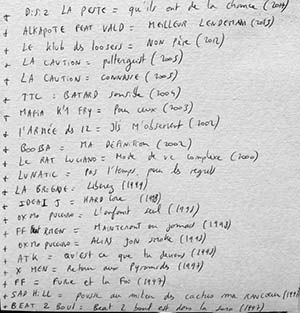 + D:siz LA PESTE = qu'ils ont de la chance (2014)
+ ALKAPOTE FEAT VALD = MEILLEUR LENDEMAIN (2013)
+ LE klub des loosers = NON Père (2012)
+ LA CAUTION = poltergeist (2005)
+ LA CAUTION = CONNAIS (2005)
+ TTC = BATARD sensible (2004)
+ MAFIA K'1 FRY = Pour ceux (2003)
+ L'ARMÉE des 12 = Ils M'observent (2002)
+ BOOBA = MA DEFINITION (2002)
+ Le RAT LUCIANO = Mode de vie complexe (2000)
+ LUNATIC = Pas l'temps pour les regrets
+ LA BRIGADE = Liberez (1999)
+ IDEAL J = HARDCORE (1998)
+ OXMO PUCCINO = L'enfant seul (1998)
+ FF = MAINTENANT ou jamais (1998)
+ OXMO PUCCINO = ALIAS JON smoke (1998)
+ ATK = QU'EST ce que tu deviens (1998)
+ X MEN = Retour aux Pyramides (1997)
+ FF = Furie et la Foi (1997)
+ SAD HILL = pousse au milieu des cactus ma RANCOEUR (1997)
+ BEAT 2 BOUL = Beat 2 boul est dans la (1997)